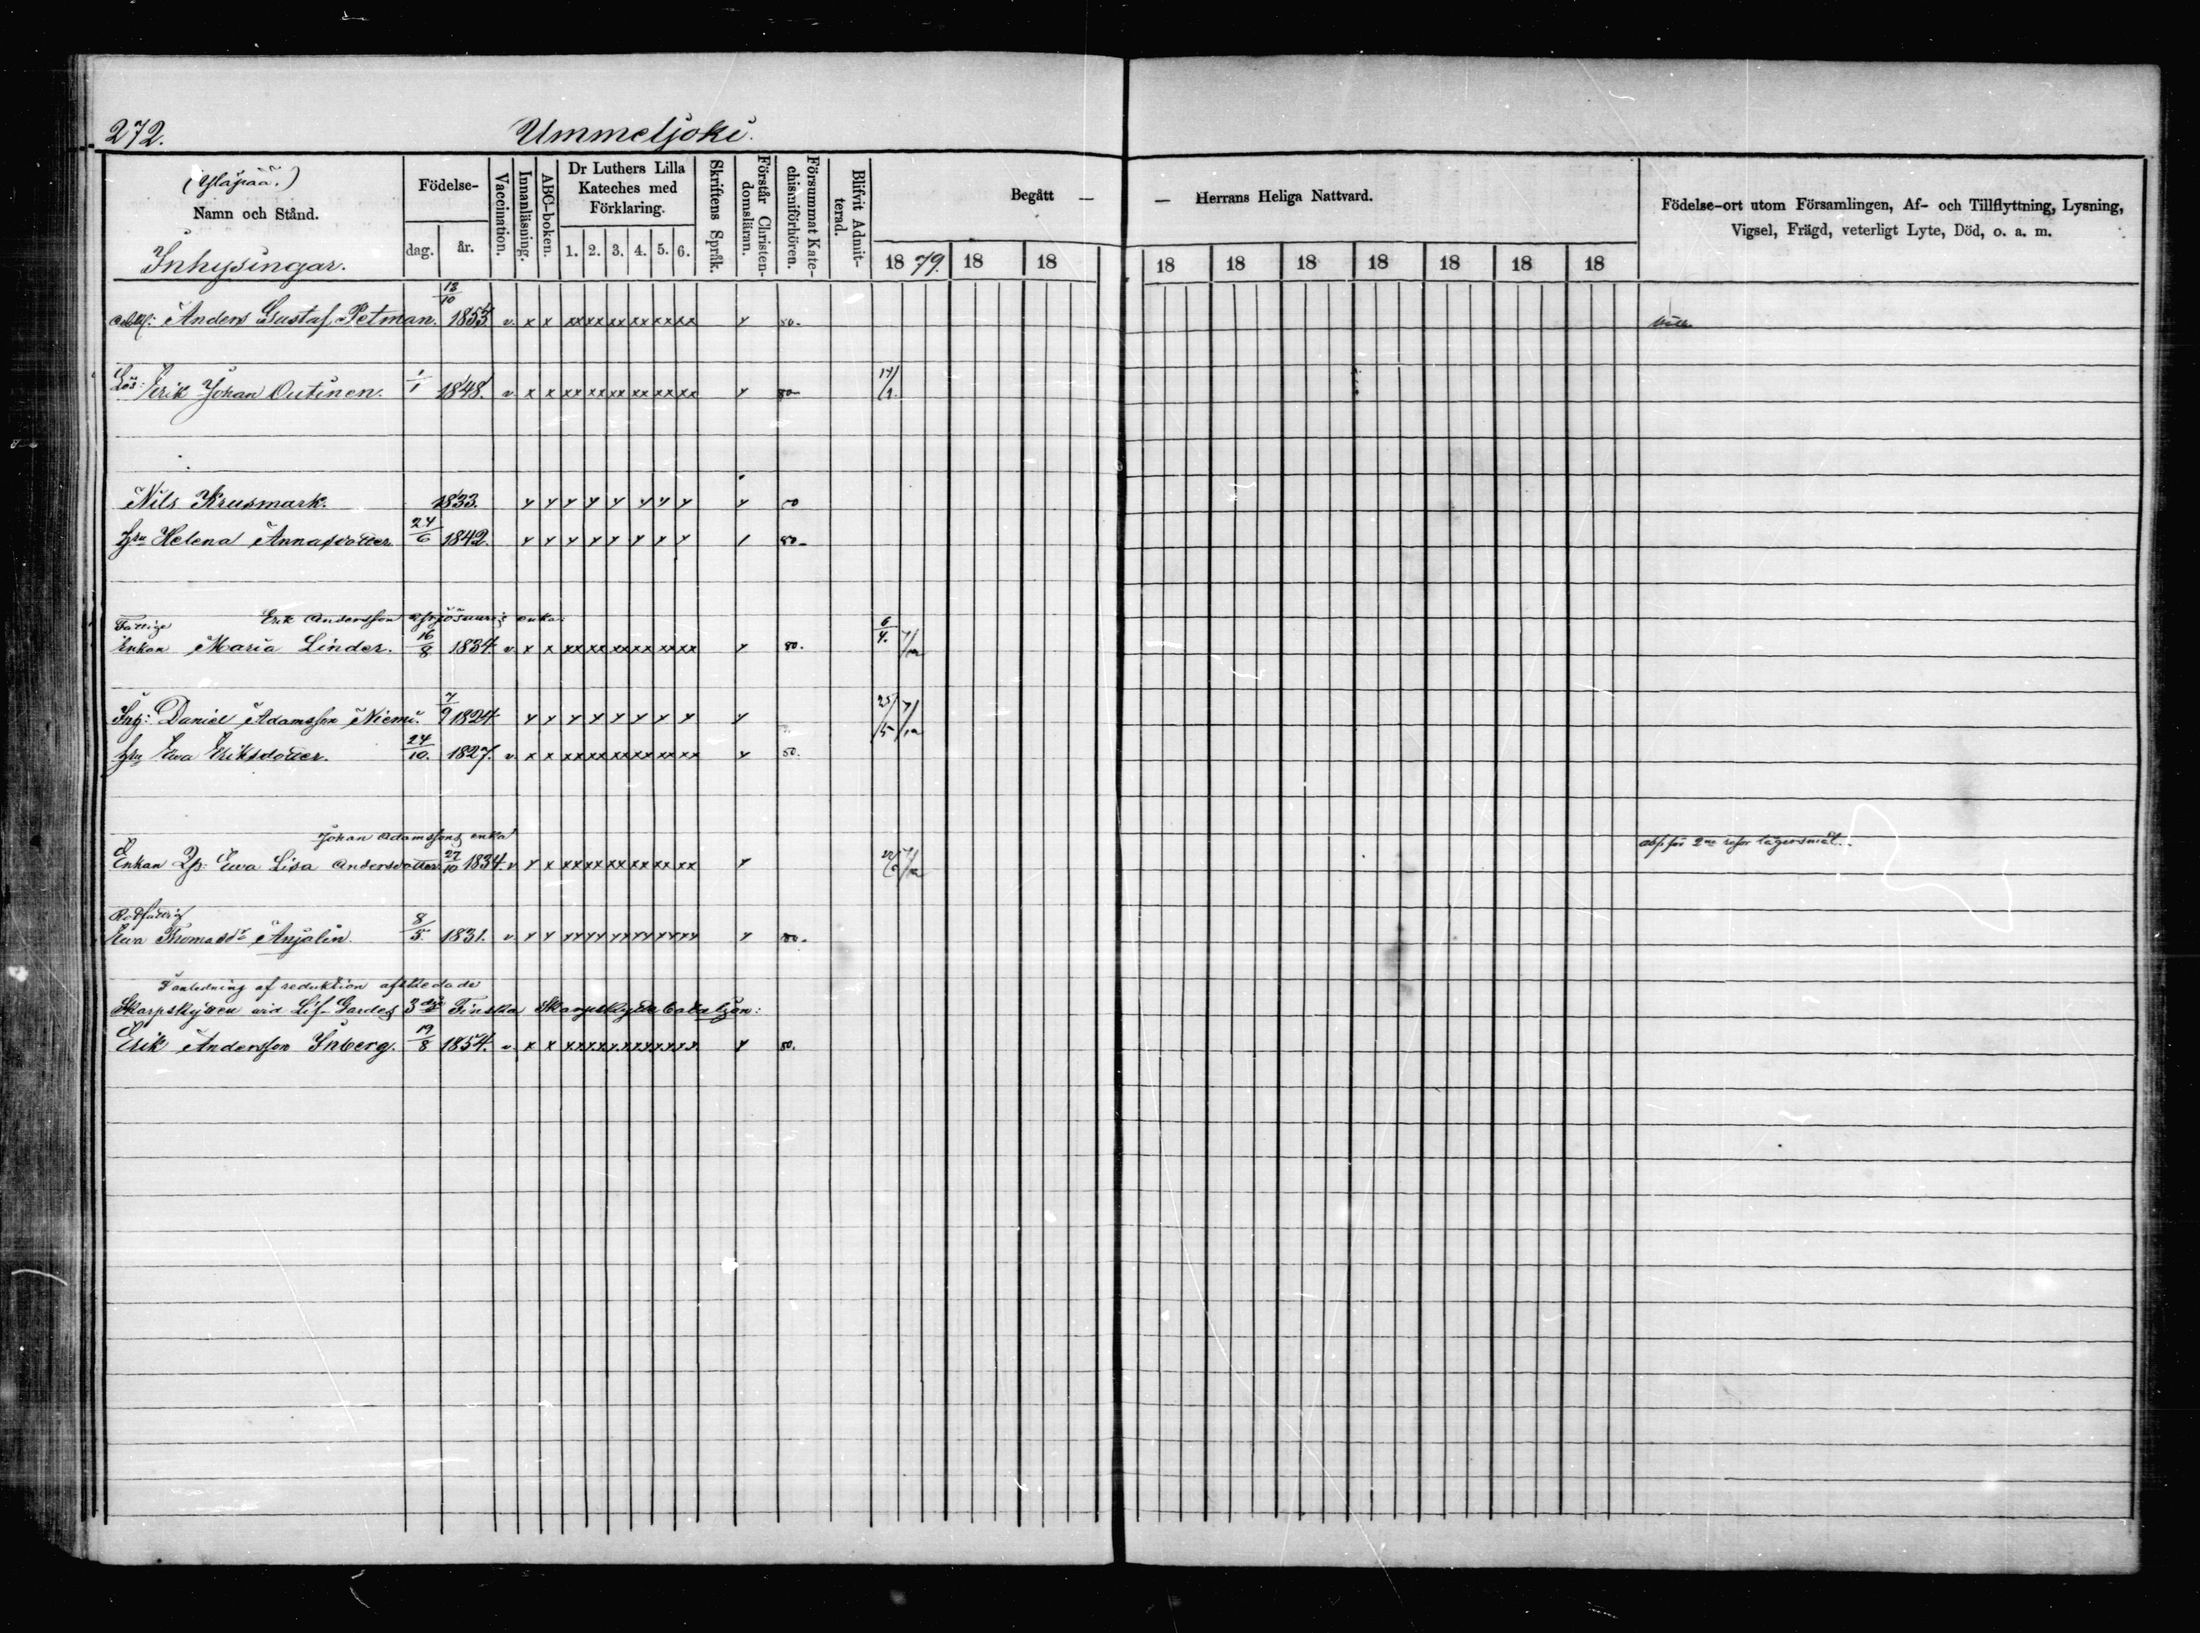 272. Ummeljoki.
(Yläpää.)
Namn och Stånd.
Inhysingar.
Födelse-
dag. år.
Vaccination.
Innanläsning.
ABC-boken.
Dr Luthers Lilla
Kateches med
Förklaring.
1. 2. 3. 4. 5. 6.
Skriftens Språk.
Förstår Christen-
domsläran.
Försummat Kate-
chismiförhören.
Blifvit Admit-
terad.
Begått — — Herrans Heliga Nattvard.
18 79. 18 18 18 18 18 18 18 18 18
Födelse-ort utom Församlingen, Af- och Tillflyttning, Lysning,
Vigsel, Frägd, veterligt Lyte, Död, o. a. m.
Anders Gustaf Petman. 13/10 1853 v. x x xx xx xx xx xx xx x 80.
Lös: Erik Johan Outinen. 1/1 1848. v. x x xx xx xx xx xx xx x 80
Nils Krusmark. 1833. x x x x x x x x x
Hru Helena Annasdotter 24/6 1842. x x x x x x x x 80
Erik Andersson enka.
Fattige
Enkan Maria Linder. 16/8 1834 v. x x xx xx xx xx xx xx x 80. 6/4. 7/12
Inh: Daniel Adamsson Niemi. 7/9 1824 x x x x x x x x x 25/5 7/12
Hru Ewa Eriksdotter. 24/10. 1827. v. x x xx xx xx xx xx xx x 80.
Johan Adamssons enka
Enkan Ewa Lisa Andersdotter 27/10 1834. v x x xx xx xx xx xx xx x 7/12
abs. för 2ne resor lägersmål.
Rotfattig
Ewa Thomasdr Anjalin. 8/5. 1831. v. x x xx xx xx xx xx xx x 80.
I anledning af reduktion afskedade
Skarpskytten vid Lif-Gardes 3dje Finska Skarpskytte bataljon:
Erik Andersson Inberg. 19/8 1854. v. x x xx xx xx xx xx xx x 80.